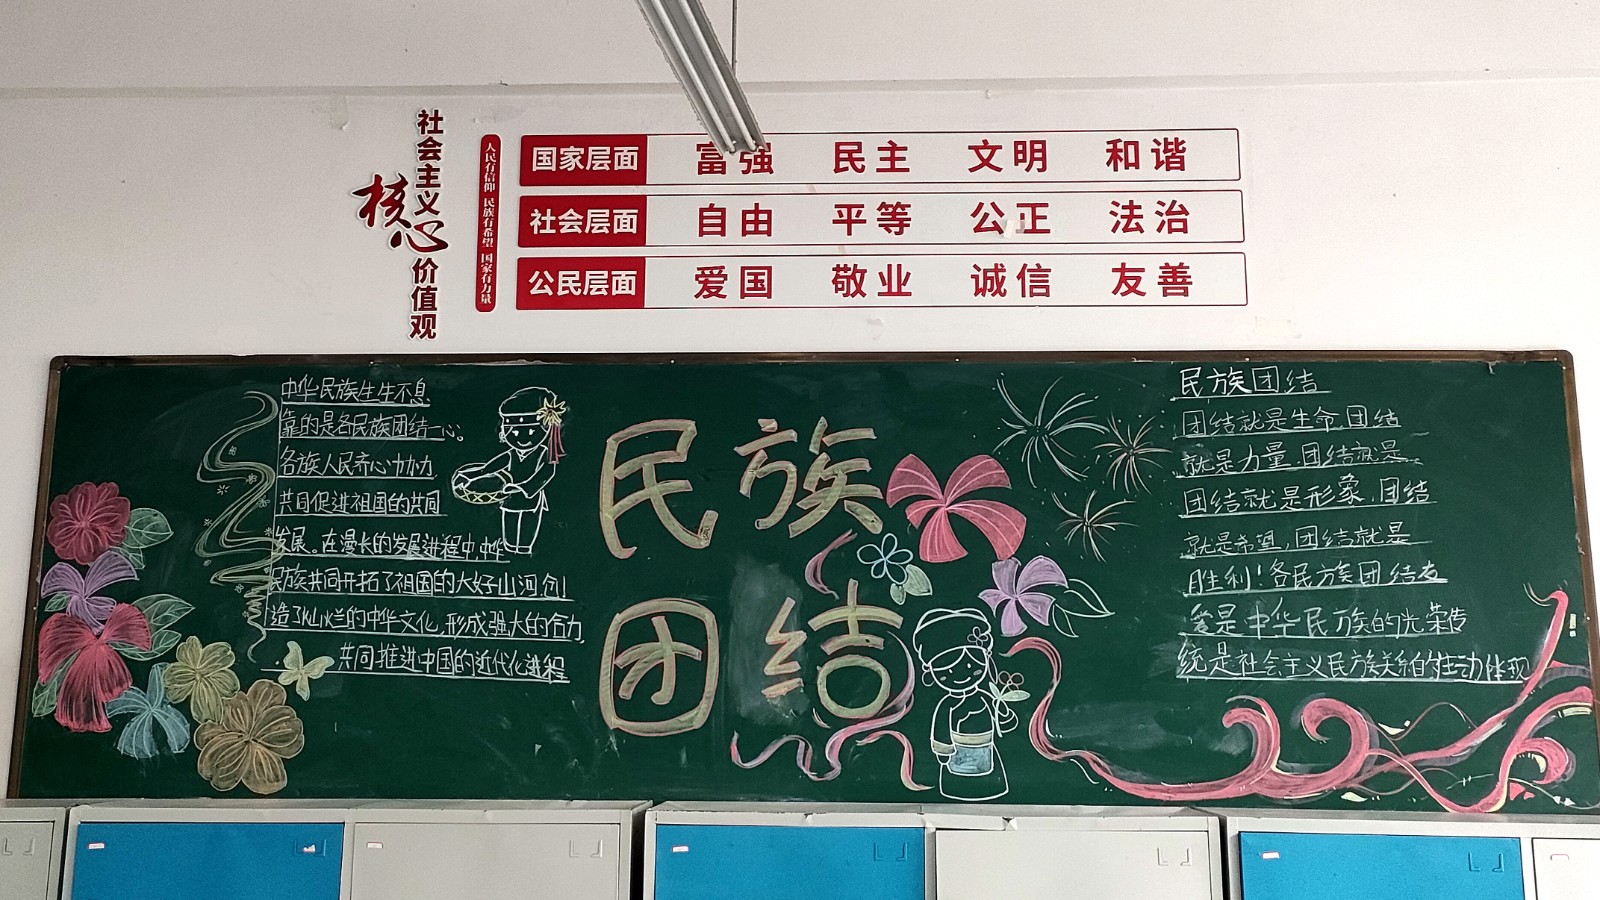 社会主义
核心
价值观
人民有信仰 民族有希望 国家有力量
国家层面 富强 民主 文明 和谐
社会层面 自由 平等 公正 法治
公民层面 爱国 敬业 诚信 友善
中华民族生生不息
靠的是各民族团结一心。
各族人民齐心协力
共同促进祖国的共同
发展。在漫长的发展进程中,中华
民族共同开拓了祖国的大好山河,创
造了灿烂的中华文化,形成强大的合力,
共同推进中国的近代化进程
民族
团结
民族团结
团结就是生命,团结
就是力量,团结就是
团结就是形象,团结
就是希望,团结就是
胜利!各民族团结友
爱是中华民族的光荣传
统是社会主义民族关系的生动体现